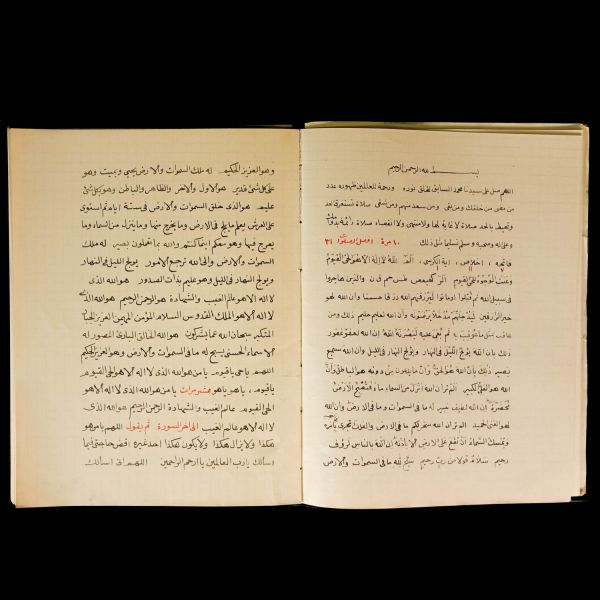 بسم الله الرحمن الرحيم
اللهم صل على سيدنا محمد السابق للخلق نوره ورحمة للعالمين ظهوره عدد
من مضى من خلقك ومن بقي ومن سعد منهم ومن شقي صلاة تستغرق العد
وتحيط بالحد صلاة لا غاية لها ولا منتهى ولا انقضاء صلاة دائمة بدوامك
وعلى آله وصحبه وسلم تسليما مثل ذلك ١٠ مرة
فاتحه ، اخلاص ، اية الكرسي ، الم الله لا إله الا هو الحي القيوم
وعنت الوجوه للحي القيوم الم كهيعص طس حم ق ن والذين هاجروا
في سبيل الله ثم قتلوا او ماتوا ليرزقنهم الله رزقا حسنا وان الله لهو
خير الرازقين ليدخلنهم مدخلا يرضونه وان الله لعليم حليم ذلك ومن
عاقب بمثل ما عوقب به ثم بغي عليه لينصرنه الله ان الله لعفو غفور
ذلك بان الله يولج الليل في النهار ويولج النهار في الليل وان الله سميع
بصير ذلك بان الله هو الحق وان ما يدعون من دونه هو الباطل وان
الله هو العلي الكبير الم تر ان الله انزل من السماء ماء فتصبح الارض
مخضرة ان الله لطيف خبير له ما في السموات وما في الارض وان الله
لهو الغني الحميد الم تر ان الله سخر لكم ما في الارض والفلك تجري بأمره
ويمسك السماء ان تقع على الارض الا باذنه ان الله بالناس لرؤف
رحيم سلام قولا من رب رحيم سبح لله ما في السموات والارض
وهو العزيز الحكيم له ملك السموات والارض يحيي ويميت وهو
على كل شئ قدير هو الاول والاخر والظاهر والباطن وهو بكل شئ
عليم هو الذي خلق السموات والارض في ستة ايام ثم استوى
على العرش يعلم ما يلج في الارض وما يخرج منها وما ينزل من السماء وما
يعرج فيها وهو معكم اينما كنتم والله بما تعملون بصير له ملك
السموات والارض والى الله ترجع الامور يولج الليل في النهار
ويولج النهار في الليل وهو عليم بذات الصدور هو الله الذي
لا اله الا هو عالم الغيب والشهادة هو الرحمن الرحيم هو الله الذي
لا اله الا هو الملك القدوس السلام المؤمن المهيمن العزيز الجبار
المتكبر سبحان الله عما يشركون هو الله الخالق البارئ المصور له
الاسماء الحسنى يسبح له ما في السموات والارض وهو العزيز الحكيم
اللهم يا حي يا قيوم يا من هو الله الذي لا اله الا هو الحي القيوم
يا قيوم ، يا هو يا هو عشر مرات يا من هو الله الذي لا اله الا هو
الحي القيوم عالم الغيب والشهادة الرحمن الرحيم هو الله الذي
لا اله الا هو عالم الغيب الى اخر السورة ثم يقول اللهم يا من هو
هكذا ولا يزال هكذا ولا يكون هكذا احد غيره اقض حاجتي فيما
اسألك يا رب العالمين يا ارحم الراحمين اللهم اني اسألك